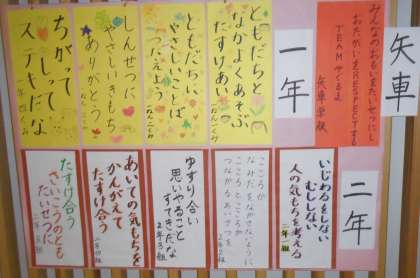 矢車
みんなのおもいをたいせつにし
おたがいをRESPECTする
TEAMやぐるま
矢車学級
一年
ともだちと
なかよくあそぶ
たすけあい
ともだちに
やさしいことば
つたえよう
しんせつに
やさしいきもち
ありがとう
ちがって
しって
ステキだな
二年
いじわるをしない
むししない
人の気もちを考える
二年一組
こころが
なみだをながさないように
こころとこころが
つながるあいさつを
2年2組
ゆずり合い
思いやること
すてきだな
2年3組
あいての気もちを
かんがえて
たすけ合う
二年四組
たすけ合う
さいこうのとも
たいせつに